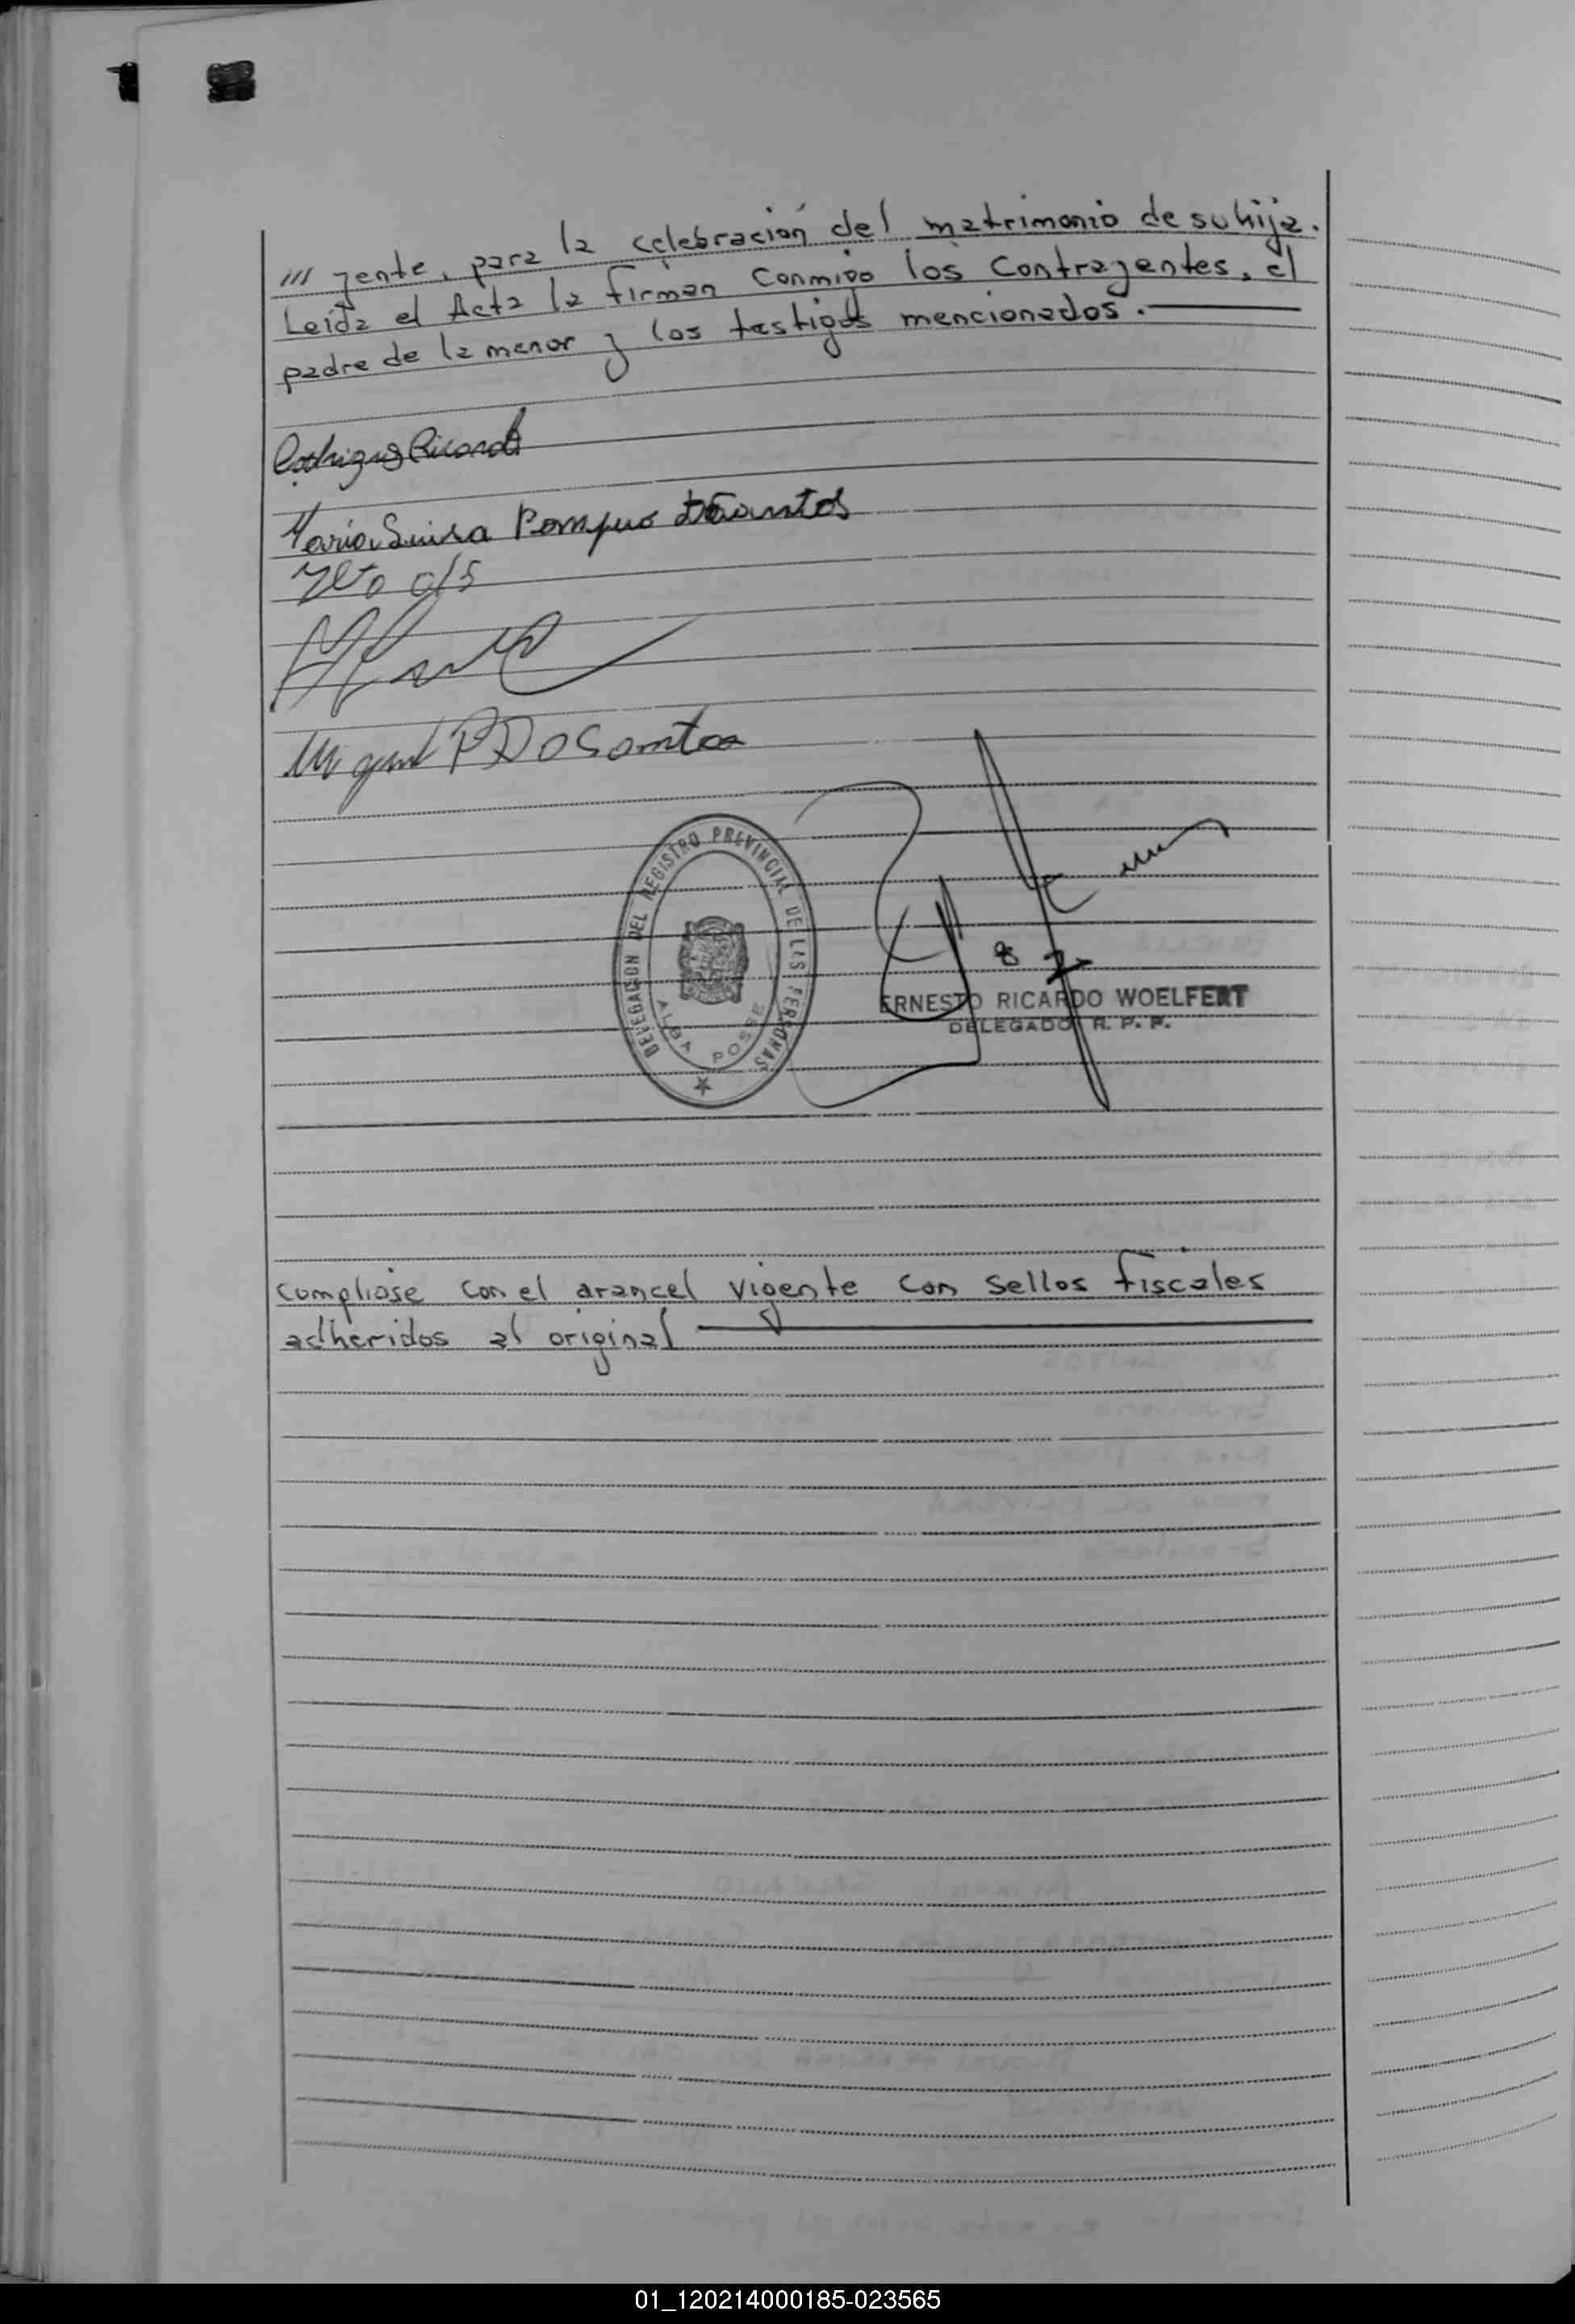 /// gente, para la celebración del matrimonio de su hija.
Leída el Acta la firman conmigo los contrayentes, el
padre de la menor y los testigos mencionados.
Rodriguez Ricardo
María Luisa Pompeo Dos Santos
Miguel P Dos Santos
DELEGACION DEL REGISTRO PROVINCIAL DE LAS PERSONAS
ALBA POSSE
ERNESTO RICARDO WOELFERT
DELEGADO R. P. P.
Cumpliose con el arancel vigente con sellos fiscales
adheridos al original
01_120214000185-023565